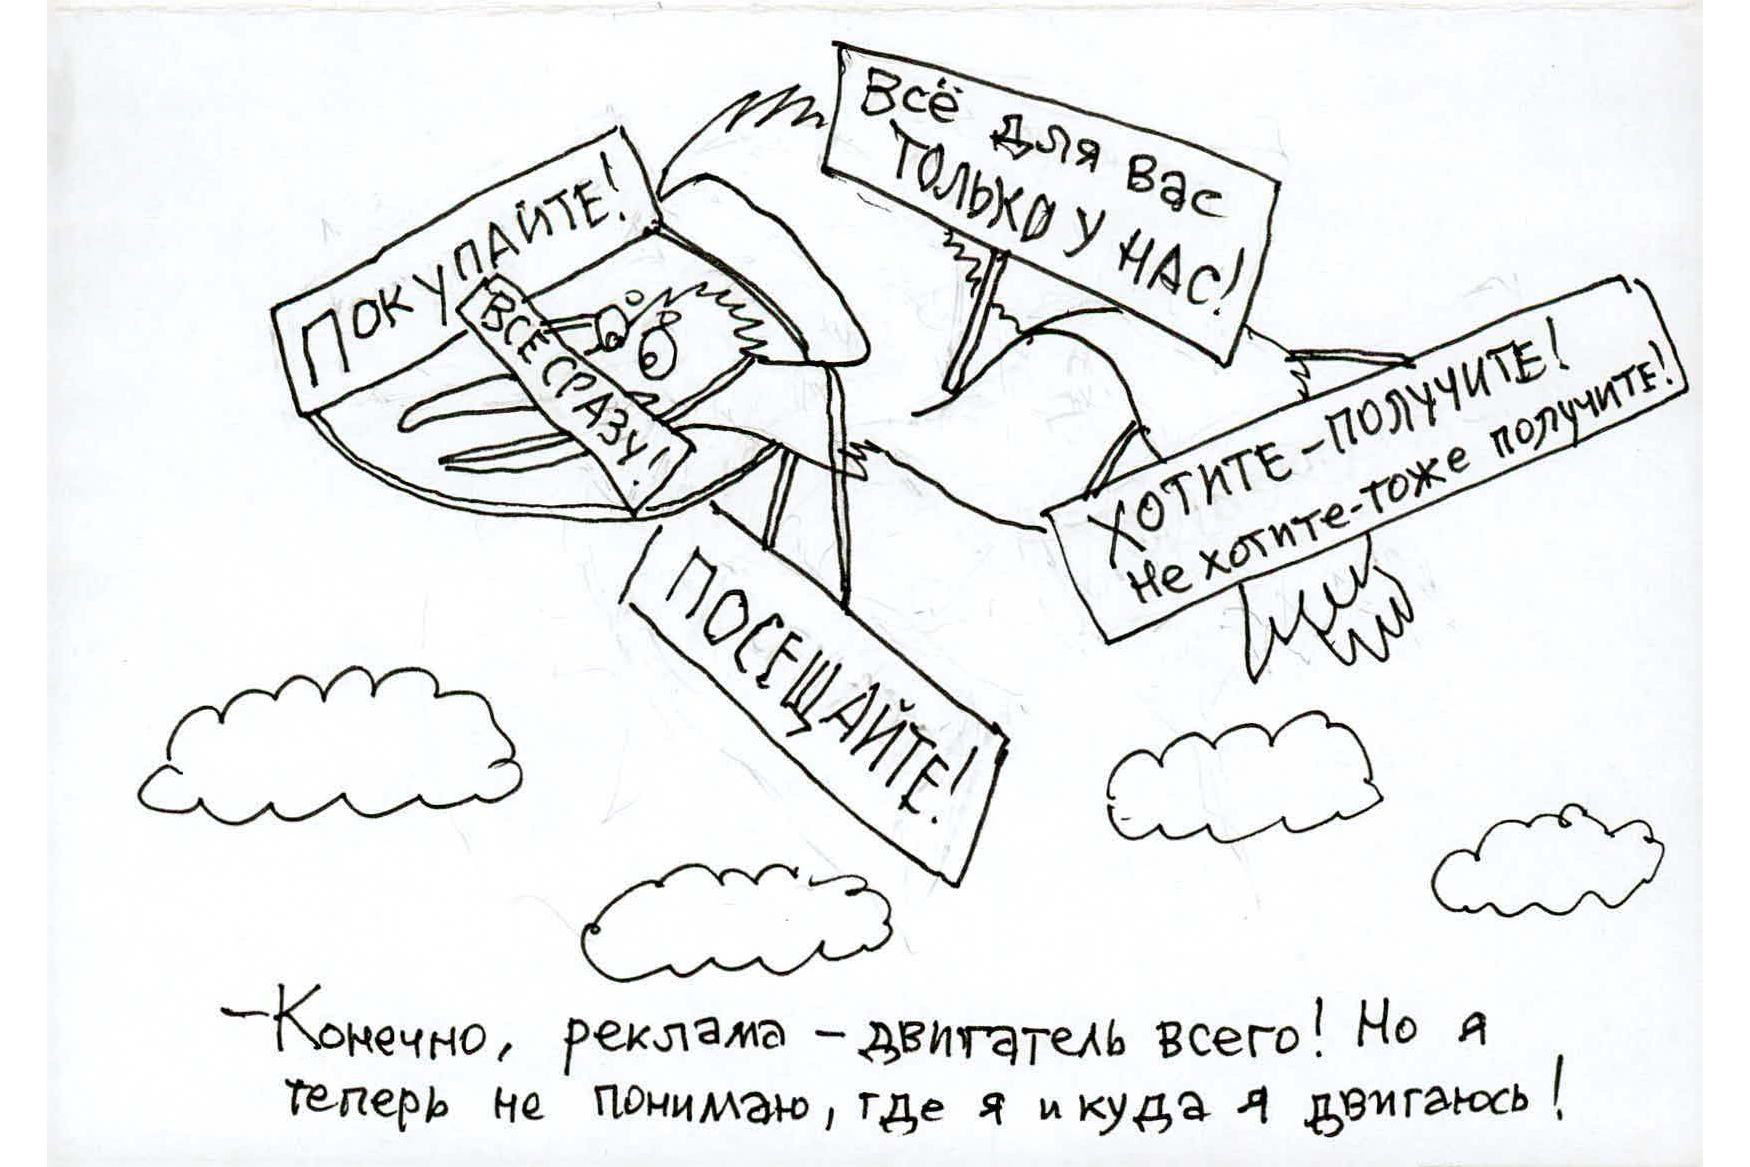 Всё для вас
ТОЛЬКО У НАС!
ПОКУПАЙТЕ!
ВСЕ СРАЗУ!
ХОТИТЕ - ПОЛУЧИТЕ!
Не хотите - тоже получите!
ПОСЕЩАЙТЕ!
– Конечно, реклама – двигатель всего! Но я
теперь не понимаю, где я и куда я двигаюсь!